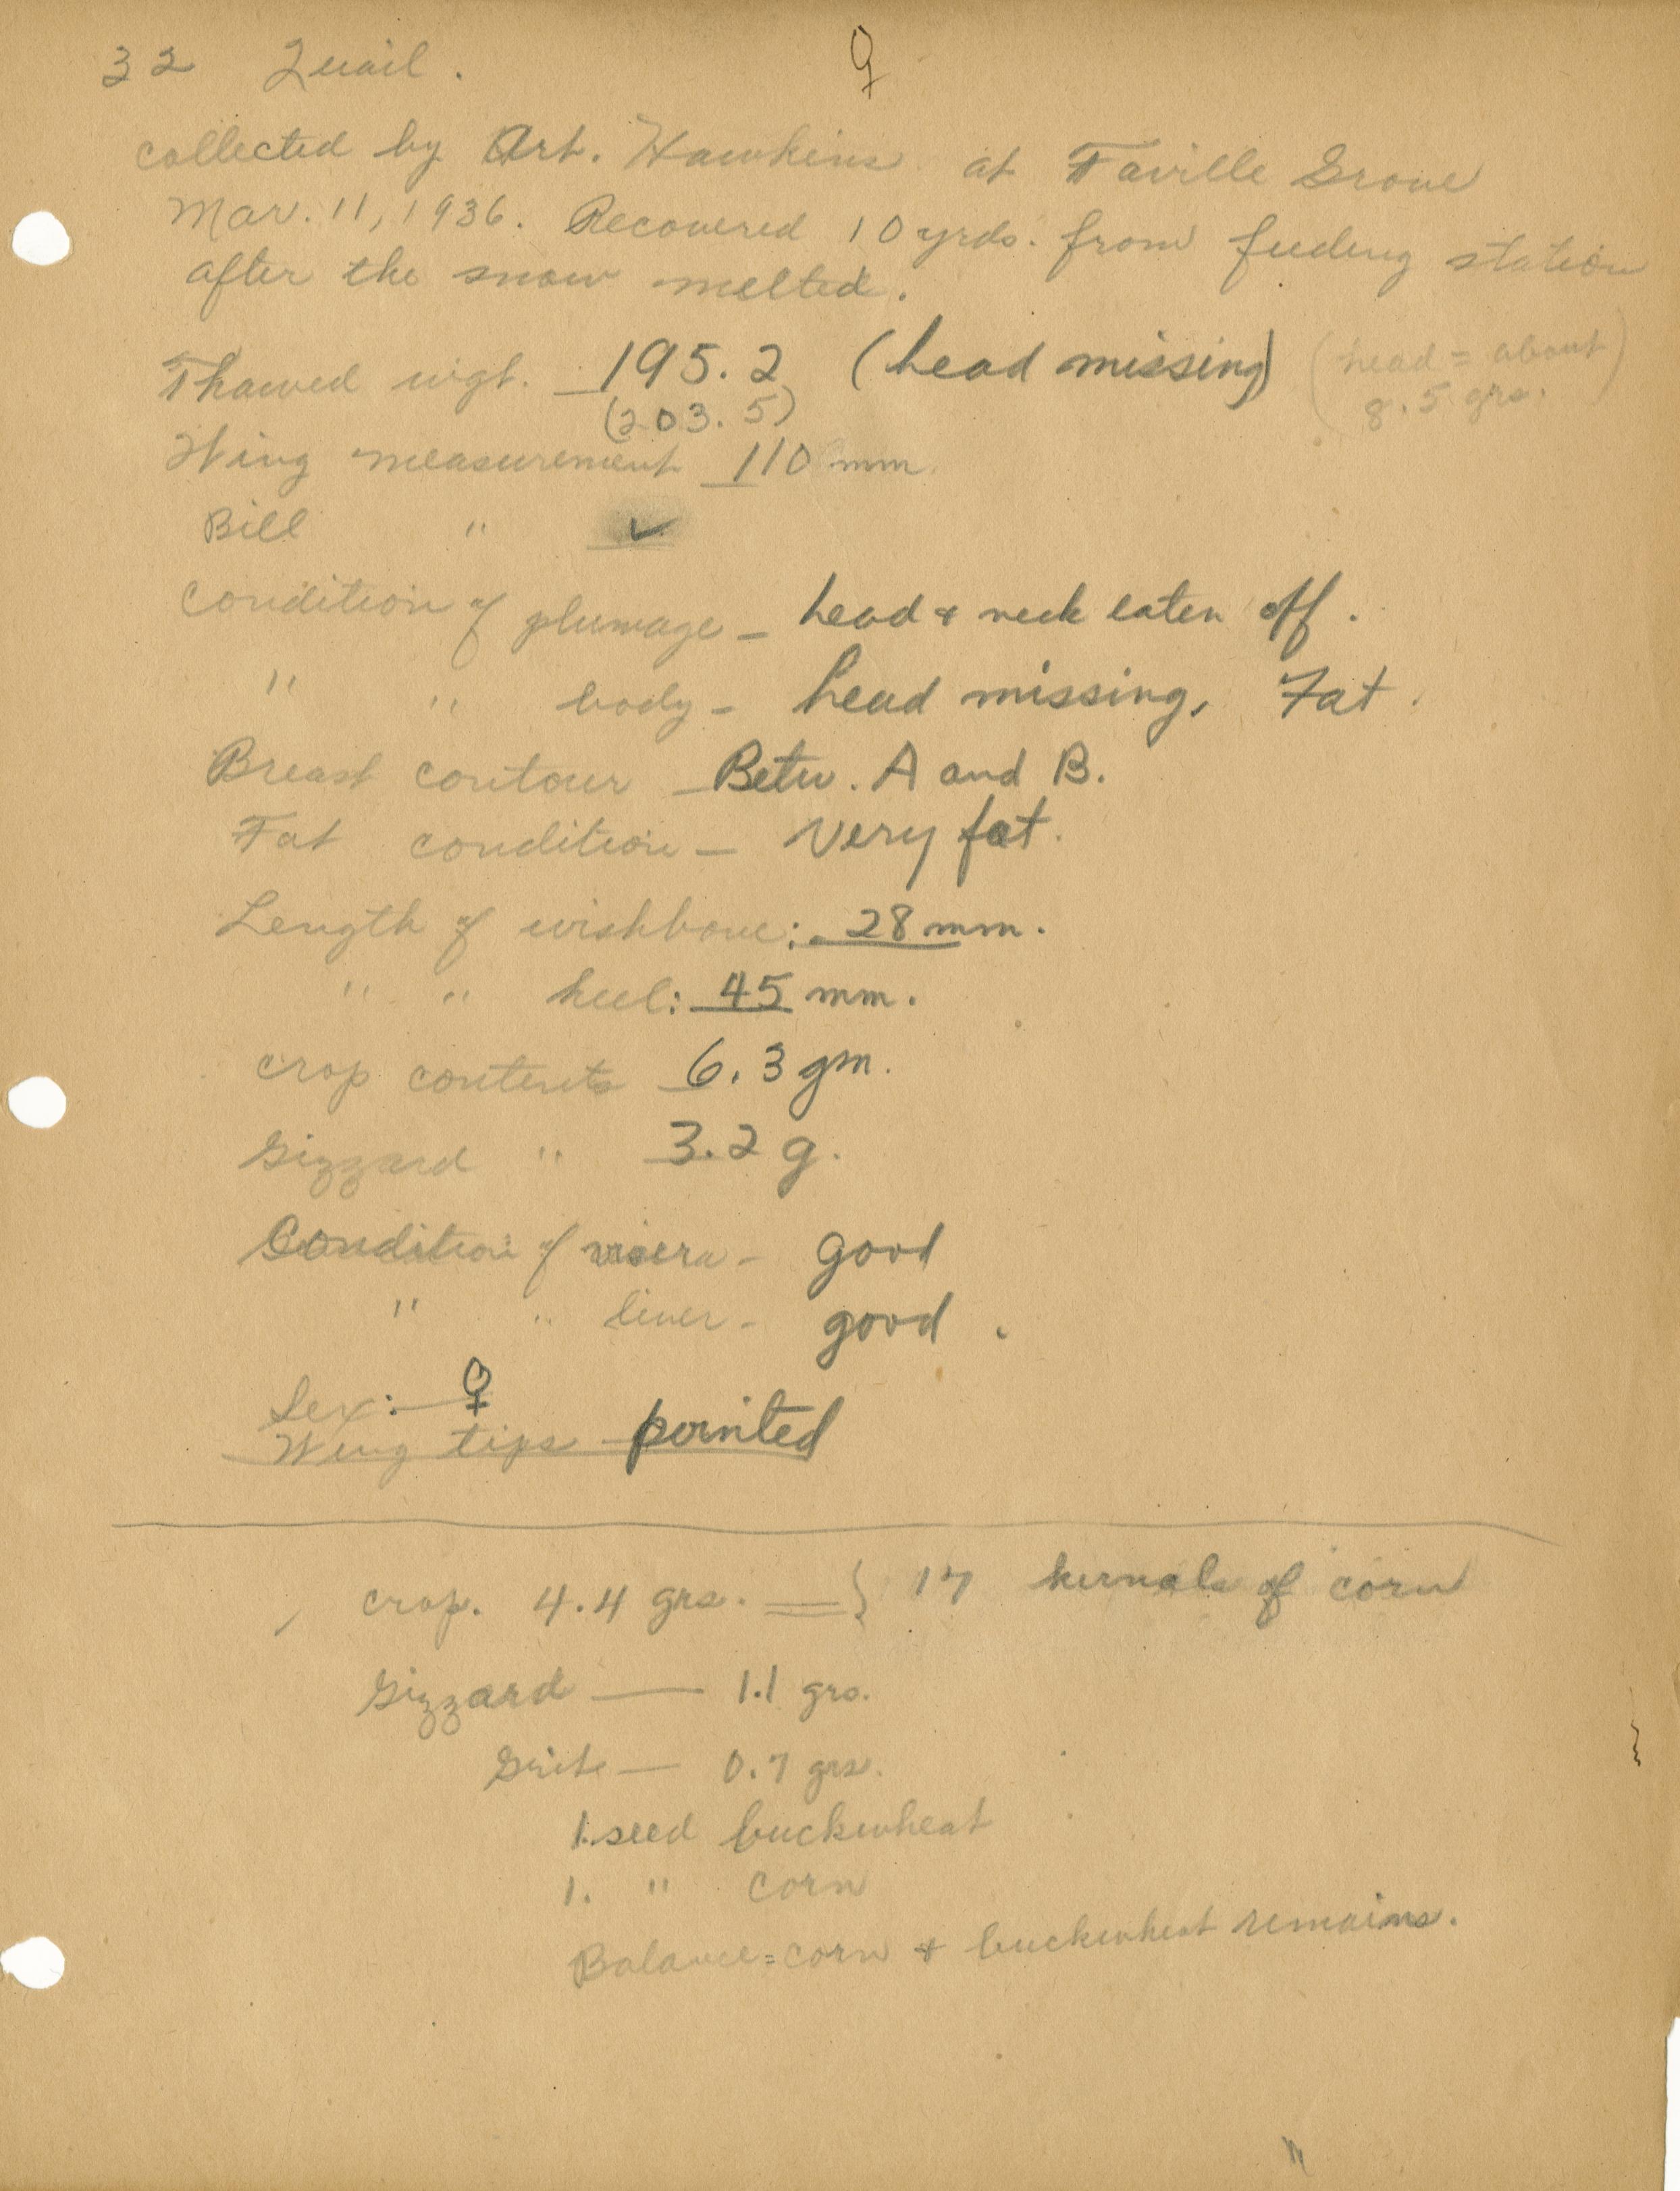 32 Quail. ♀
collected by Art. Hawkins at Faville Grove
Mar. 11, 1936. Recovered 10 yrds. from feeding station
after the snow melted.
Thawed wgt. 195.2 (head missing) (head = about
(203.5) 8.5 grs.)
Wing measurement 110 mm
Bill " ✓
Condition of plumage - head & neck eaten off.
" " body - head missing, Fat.
Breast contour Betw. A and B.
Fat condition - Very fat.
Length of wishbone: 28 mm.
" " heel: 45 mm.
crop contents 6.3 gm.
Gizzard " 3.2 g.
Condition of viscera - good
" " liver - good.
Sex: ♀
Wing tips pointed
crop. 4.4 grs. = } 17 kernals of corn
Gizzard — 1.1 grs.
Grits — 0.7 grs.
1. seed buckwheat
1. " corn
Balance = corn & buckwheat remains.